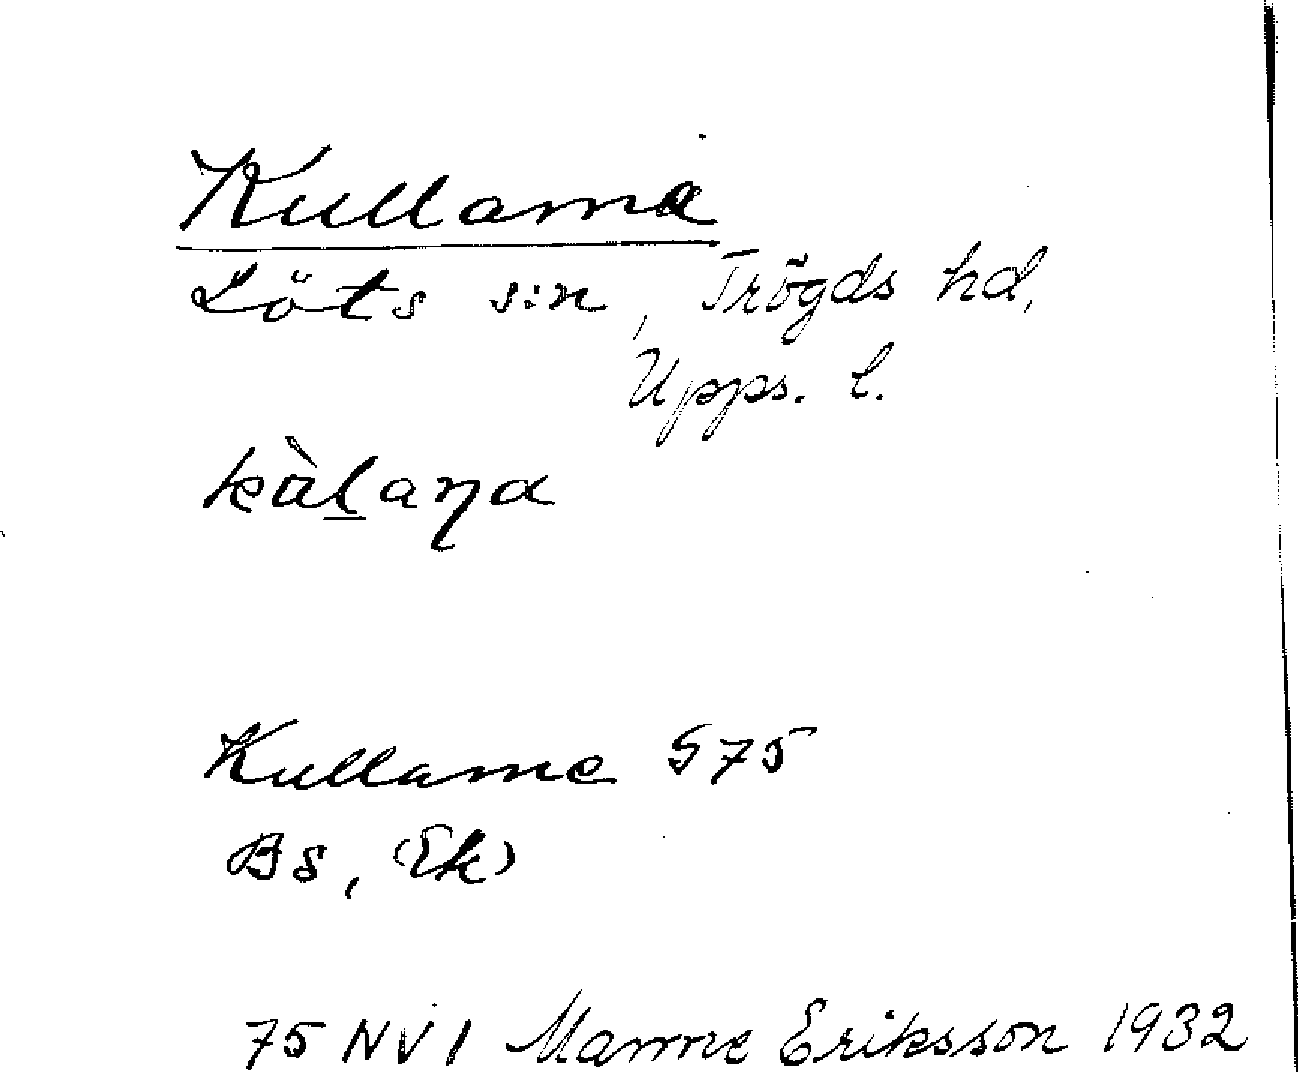 Kullarna
Löts s:n, Trögds hd,
Upps. l.
kàḻaɳa
Kullarne S75
Bs, (Ek)
75 NV 1 Manne Eriksson 1932